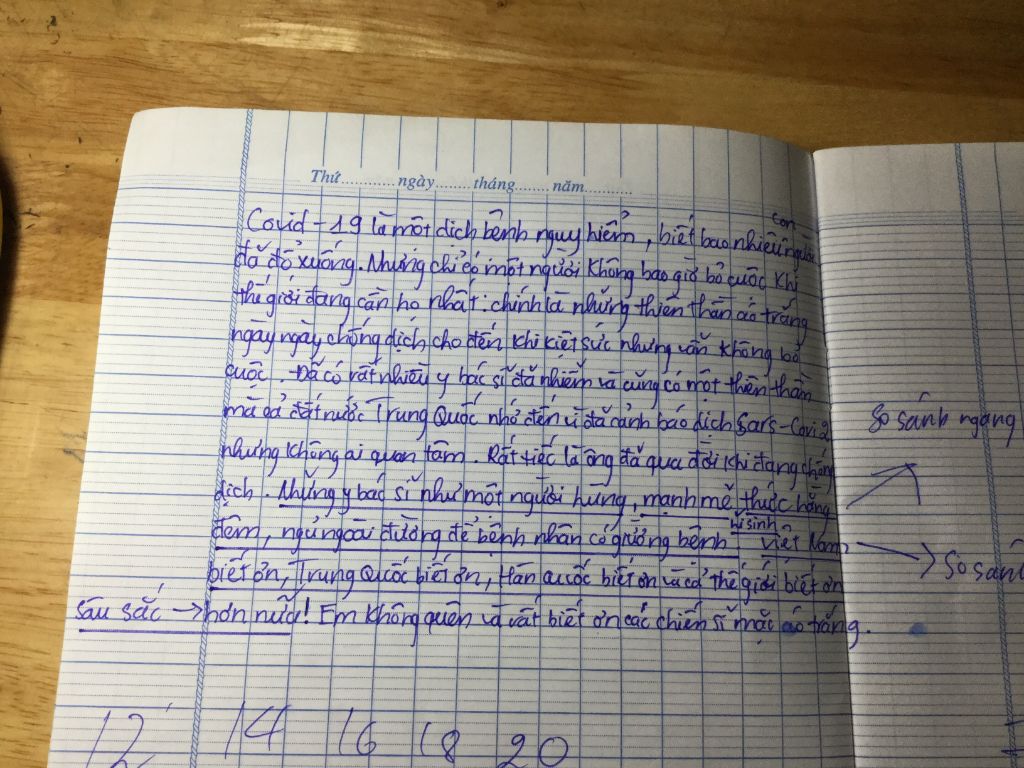 Thứ............ngày........tháng........năm...........
con
Covid-19 là một dịch bệnh nguy hiểm, biết bao nhiêu người
đã đổ xuống. Nhưng chỉ có một người không bao giờ bỏ cuộc khi
thế giới đang cần họ nhất: chính là những thiên thần áo trắng
ngày ngày chống dịch cho đến khi kiệt sức nhưng vẫn không bỏ
cuộc. Đã có rất nhiều y bác sĩ đã nhiễm và cũng có một thiên thần
mà cả đất nước Trung Quốc nhớ đến vì đã cảnh báo dịch Sars-Covi 2
nhưng không ai quan tâm. Rất tiếc là ông đã qua đời khi đang chống
dịch. Những y bác sĩ như một người hùng, mạnh mẽ thức hằng
hi sinh
đêm, ngủ ngoài đường để bệnh nhân có giường bệnh Việt Nam
biết ơn, Trung Quốc biết ơn, Hàn Quốc biết ơn và cả thế giới biết ơn
sâu sắc → hơn nữa! Em không quên và rất biết ơn các chiến sĩ mặc áo trắng.
So sánh ngang
So sánh
12 14 16 18 20